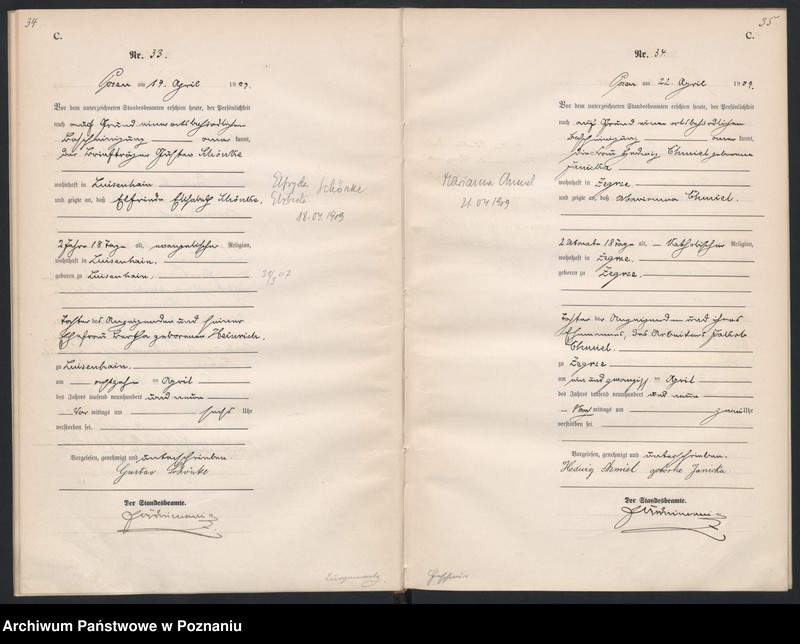 34
C.
Nr. 33.
Posen am 19. April 1909.
Vor dem unterzeichneten Standesbeamten erschien heute, der Persönlichkeit
nach auf Grund einer ortsbehördlichen
Bescheinigung kannt,
der Briefträger Gustav Schönke
wohnhaft in Luisenhain
und zeigte an, daß Elfriede Elisabeth Schönke,
2 Jahre 18 Tage alt, evangelischer Religion,
wohnhaft in Luisenhain,
geboren zu Luisenhain,
Tochter des Anzeigenden und seiner
Ehefrau Bertha geborenen Heinrich,
zu Luisenhain.
am achtzehn ten April
des Jahres tausend neunhundert und neun
Vor mittags um sechs Uhr
verstorben sei.
Vorgelesen, genehmigt und unterschrieben
Gustav Schönke
Der Standesbeamte.
Elfryda Schönke
Elżbieta
18.04.1909
31/3 07
35
C.
Nr. 34.
Posen am 22. April 1909.
Vor dem unterzeichneten Standesbeamten erschien heute, der Persönlichkeit
nach auf Grund einer ortsbehördlichen
Bescheinigung kannt,
die Frau Hedwig Chmiel geborene
Janicka
wohnhaft in Zegrze,
und zeigte an, daß Marianna Chmiel.
2 Monate 18 Tage alt, katholischer Religion,
wohnhaft in Zegrze,
geboren zu Zegrze,
Tochter der Anzeigenden und ihres
Ehemannes, des Arbeiters Jakob
Chmiel.
zu Zegrze
am ein und zwanzigsten April
des Jahres tausend neunhundert und neun
Vor mittags um zwei Uhr
verstorben sei.
Vorgelesen, genehmigt und unterschrieben.
Hedwig Chmiel geborene Janicka
Der Standesbeamte.
Marianna Chmiel
21.04.1909
Archiwum Państwowe w Poznaniu